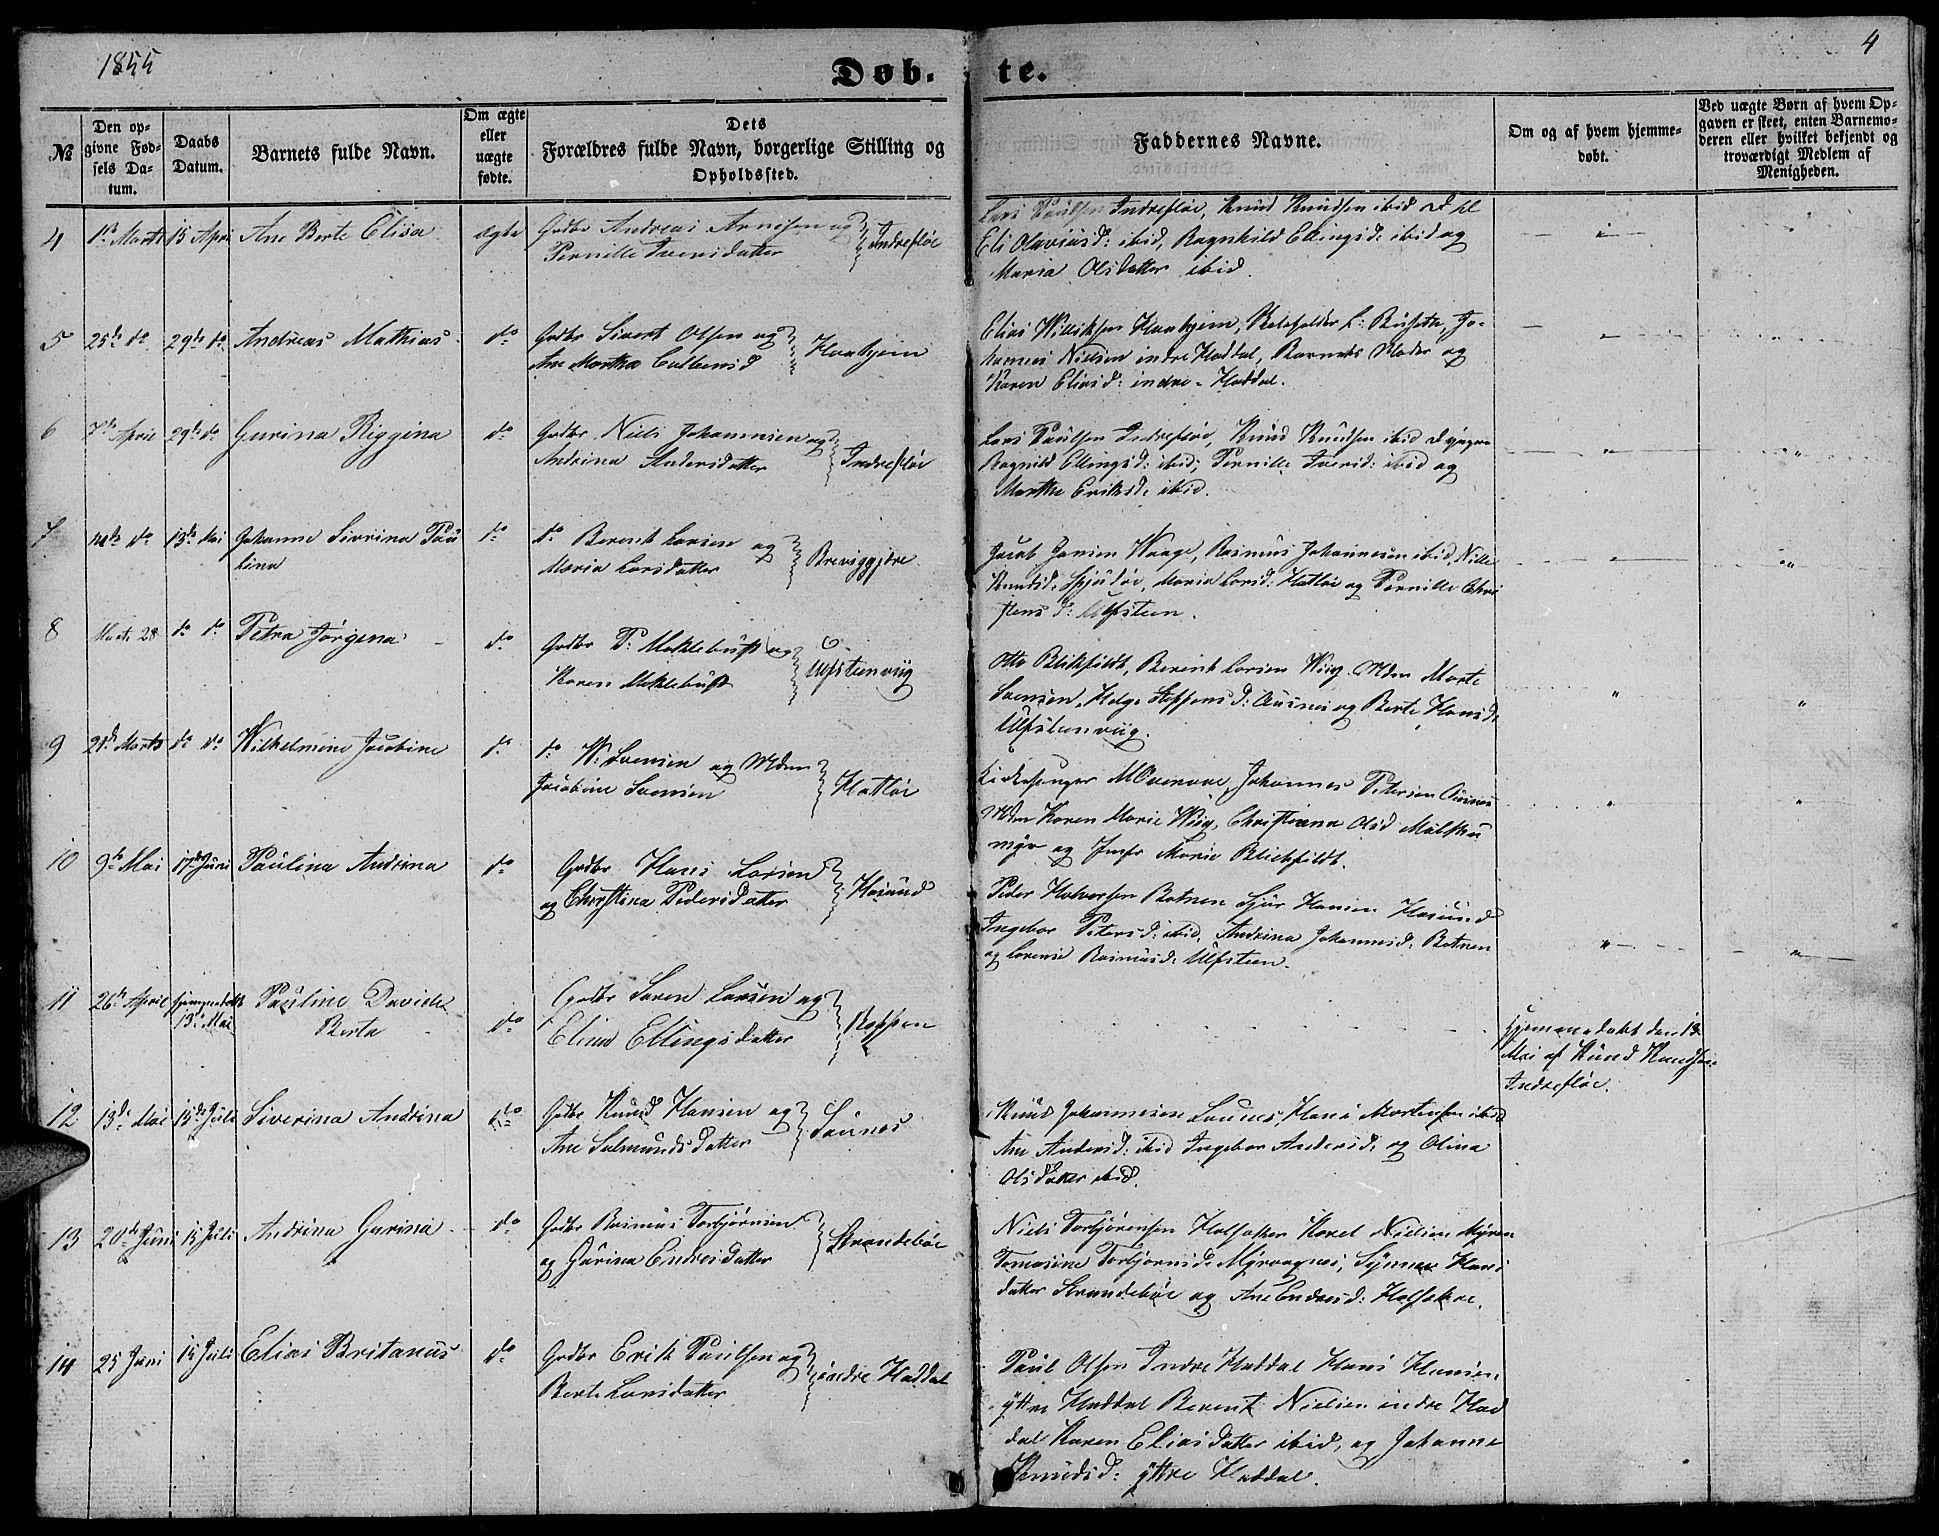 1855
4
Døb-te.
№
Den op-
givne Fød-
sels Da-
tum.
Daabs
Datum.
Barnets fulde Navn.
Om ægte
eller
uægte
fødte.
Dets
Forældres fulde Navn, borgerlige Stilling og
Opholdssted.
Faddernes Navne.
Om og af hvem hjemme-
døbt.
Ved uægte Børn af hvem Op-
gaven er skeet, enten Barnemo-
deren eller hvilket bekjendt og
troværdigt Medlem af
Menigheden.
4 1ste Marts 15 April Ane Berte Elisa ægte Gdbr Andreas Arnesen og
Pernille Iversdatter Indrefløe
Lars Paulsen Indrefløe, Knud Knudsen ibid
Eli Olaviusd: ibid, Ragnhild Ellingsd: ibid og
Maria Olsdatter ibid.
5 25de do 29de do Andreas Mathias do Gdbr Sivert Olsen og
Ane Martha Colbensd Haahjem
Elias Williksen Haahjem, L: Busetn, Jo-
hannes Nielsen indre Haddal, Barnets Moder og
Karen Eliasd: indre-Haddal.
6 7de April 29de do Gurina Riggina do Gdbr Niels Johannsen og
Andrina Andersdatter Indrefløe
Lars Paulsen Indrefløe, Knud Knudsen ibid
Ragnild Ellingsd: ibid, Pernille Iversd: ibid og
Marthe Eriksd: ibid.
7 do 13de Mai Johanne Sivrina Pau
lina do do Berent Larsen og
Maria Larsdatter Breviggjere
Jacob Jansen Waage, Rasmus Johannesen ibid, Nille
Knudsd: Spjudøe, Maria Larsd: Hatløe og Pernille Chri
stensd: Ulfsteen.
8 Marts 28 do do Petra Jørgena do Gdbr P: Moklebust og
Karen Moklebust Ulfsteenviig
Otto Blikfeldt, Berent Larsen Wiig, Mdm Marte
Svensen, Helge Steffensd: Ausnes og Berte Hansd:
Ulfsteenviig.
9 21de Marts do do Wilhelmine Jacobine do do W: Svensen og Mdm
Jacobine Svensen Hatløe
Kirkesanger M Overvae, Johannes Petersen Ausnes
Mdm Karen Marie Wiig, Christiana Olsd
og Jmfr Marie Blichfeldt.
10 9de Mai 17de Juni Paulina Andrina do Gdbr Hans Larsen
og Christina Pedersdatter Hasund
Peder Halvorsen Botnen Sjur Hansen Hasund
Ingebor Petersd: ibid, Andrina Johannesd: Botnen
og Lovise Rasmusd: Ulfsteen.
11 26de April hjemmedøbt
13de Mai Pauline Davida
Berta do Gdbr Søren Larsen og
Elina Ellingsdatter Roppen
Hjemmedøbt den 13
Mai af Knud Knudsen
Indrefløe.
12 13de Mai 15de Juli Siverina Andrina do Gdbr Knud Hansen og
Ane Salmundsdatter Saunes
Knud Johannesen Saunes, Hans Mortensen ibid
Ane Andersd: ibid Ingebor Andersd: og Olina
Olsdatter ibid.
13 20de Juni 15 Juli Andrina Gurina do Gdbr Rasmus Torbjørnsen
og Gurina Endresdatter Strandebøe
Niels Torbjørensen Halsaker Karel Nielsen Myren
Tomasine Torbjørnsd: Myrvagnes, Synner Hans
datter Strandebøe og Ane Endresd: Halsakre.
14 25 Juni 15 Juli Elias Britanus do Gdbr Erik Paulsen og
Berte Larsdatter indre Haddal
Paul Olsen Indre Haddal Hans Hansen
yttre Haddal Berent Nielsen indre Had
dal Karen Eliasdatter ibid, og Johanne
Knudsd: yttre Haddal.